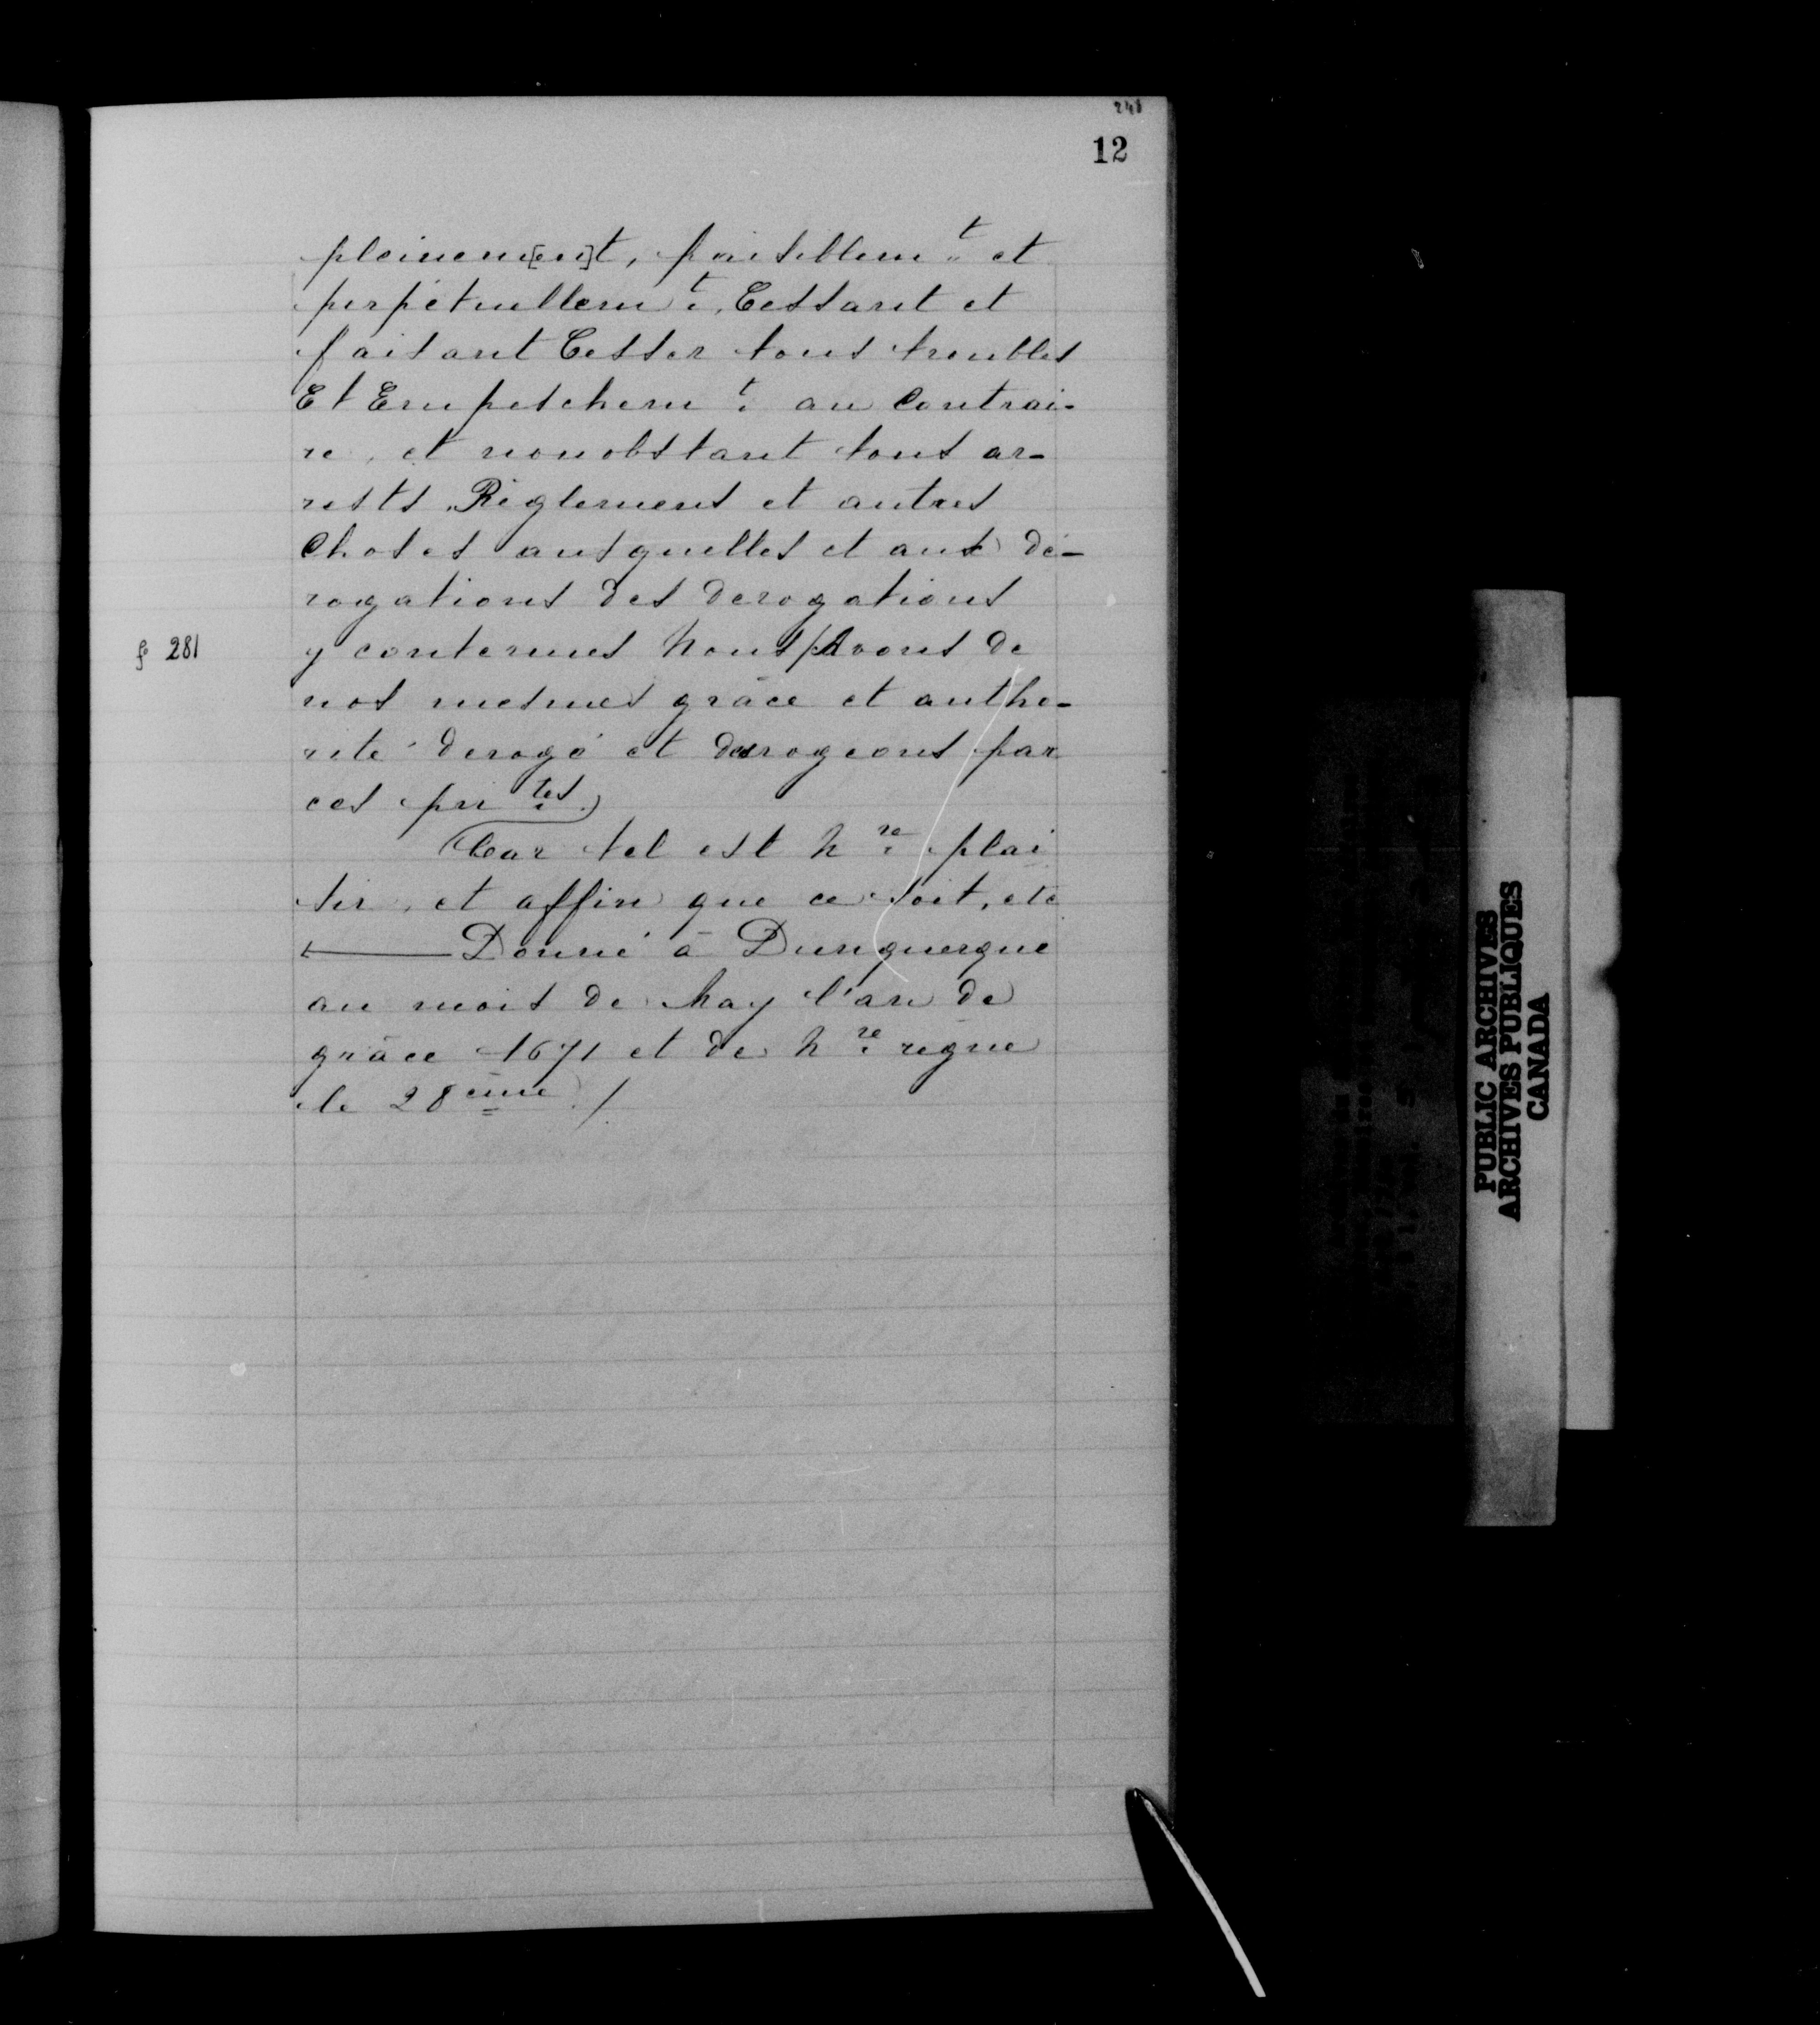 248
12
pleinem[en]t, paisiblemt et
perpétuellemt, Cessant et
faisant Cesser tous troubles
Et Empeschemt au Contrai-
re, et nonobstant tous ar-
rests, Règlemens et autres
Choses ausquelles et aux dé-
rogations des derogations
fo 281
y contenues Nous/Avons de
nos mesmes grâce et autho-
rité derogé et derogeons par
ces pntes
Car tel est Nre plai
sir, et affin que ce soit, etc
Donné à Dunquerque
au mois de May l'an de
grâce 1671 et de Nre règne
le 28eme /.
PUBLIC ARCHIVES
ARCHIVES PUBLIQUES
CANADA